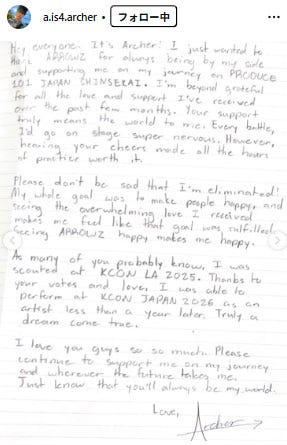 a.is4.archer
フォロー中
Hey everyone. It's Archer! I just wanted to
thank ARROWZ for always being by my side
and supporting me on my journey on PRODUCE
101 JAPAN SHINSEKAI. I'm beyond grateful
for all the love and support I've received
over the past few months. Your support
truly means the world to me. Every battle,
I'd go on stage super nervous. However,
hearing your cheers made all the hours
of practice worth it.
Please don't be sad that I'm eliminated!
My whole goal was to make people happy, and
seeing the overwhelming love I received
makes me feel like that goal was fulfilled.
Seeing ARROWZ happy makes me happy.
As many of you probably know, I was
scouted at KCON LA 2025. Thanks to
your votes and love, I was able to
perform at KCON JAPAN 2026 as an
artist less than a year later. Truly a
dream come true.
I love you guys so so much. Please
continue to support me on my journey
and wherever the future takes me.
Just know that you'll always be my world.
Love,
Archer